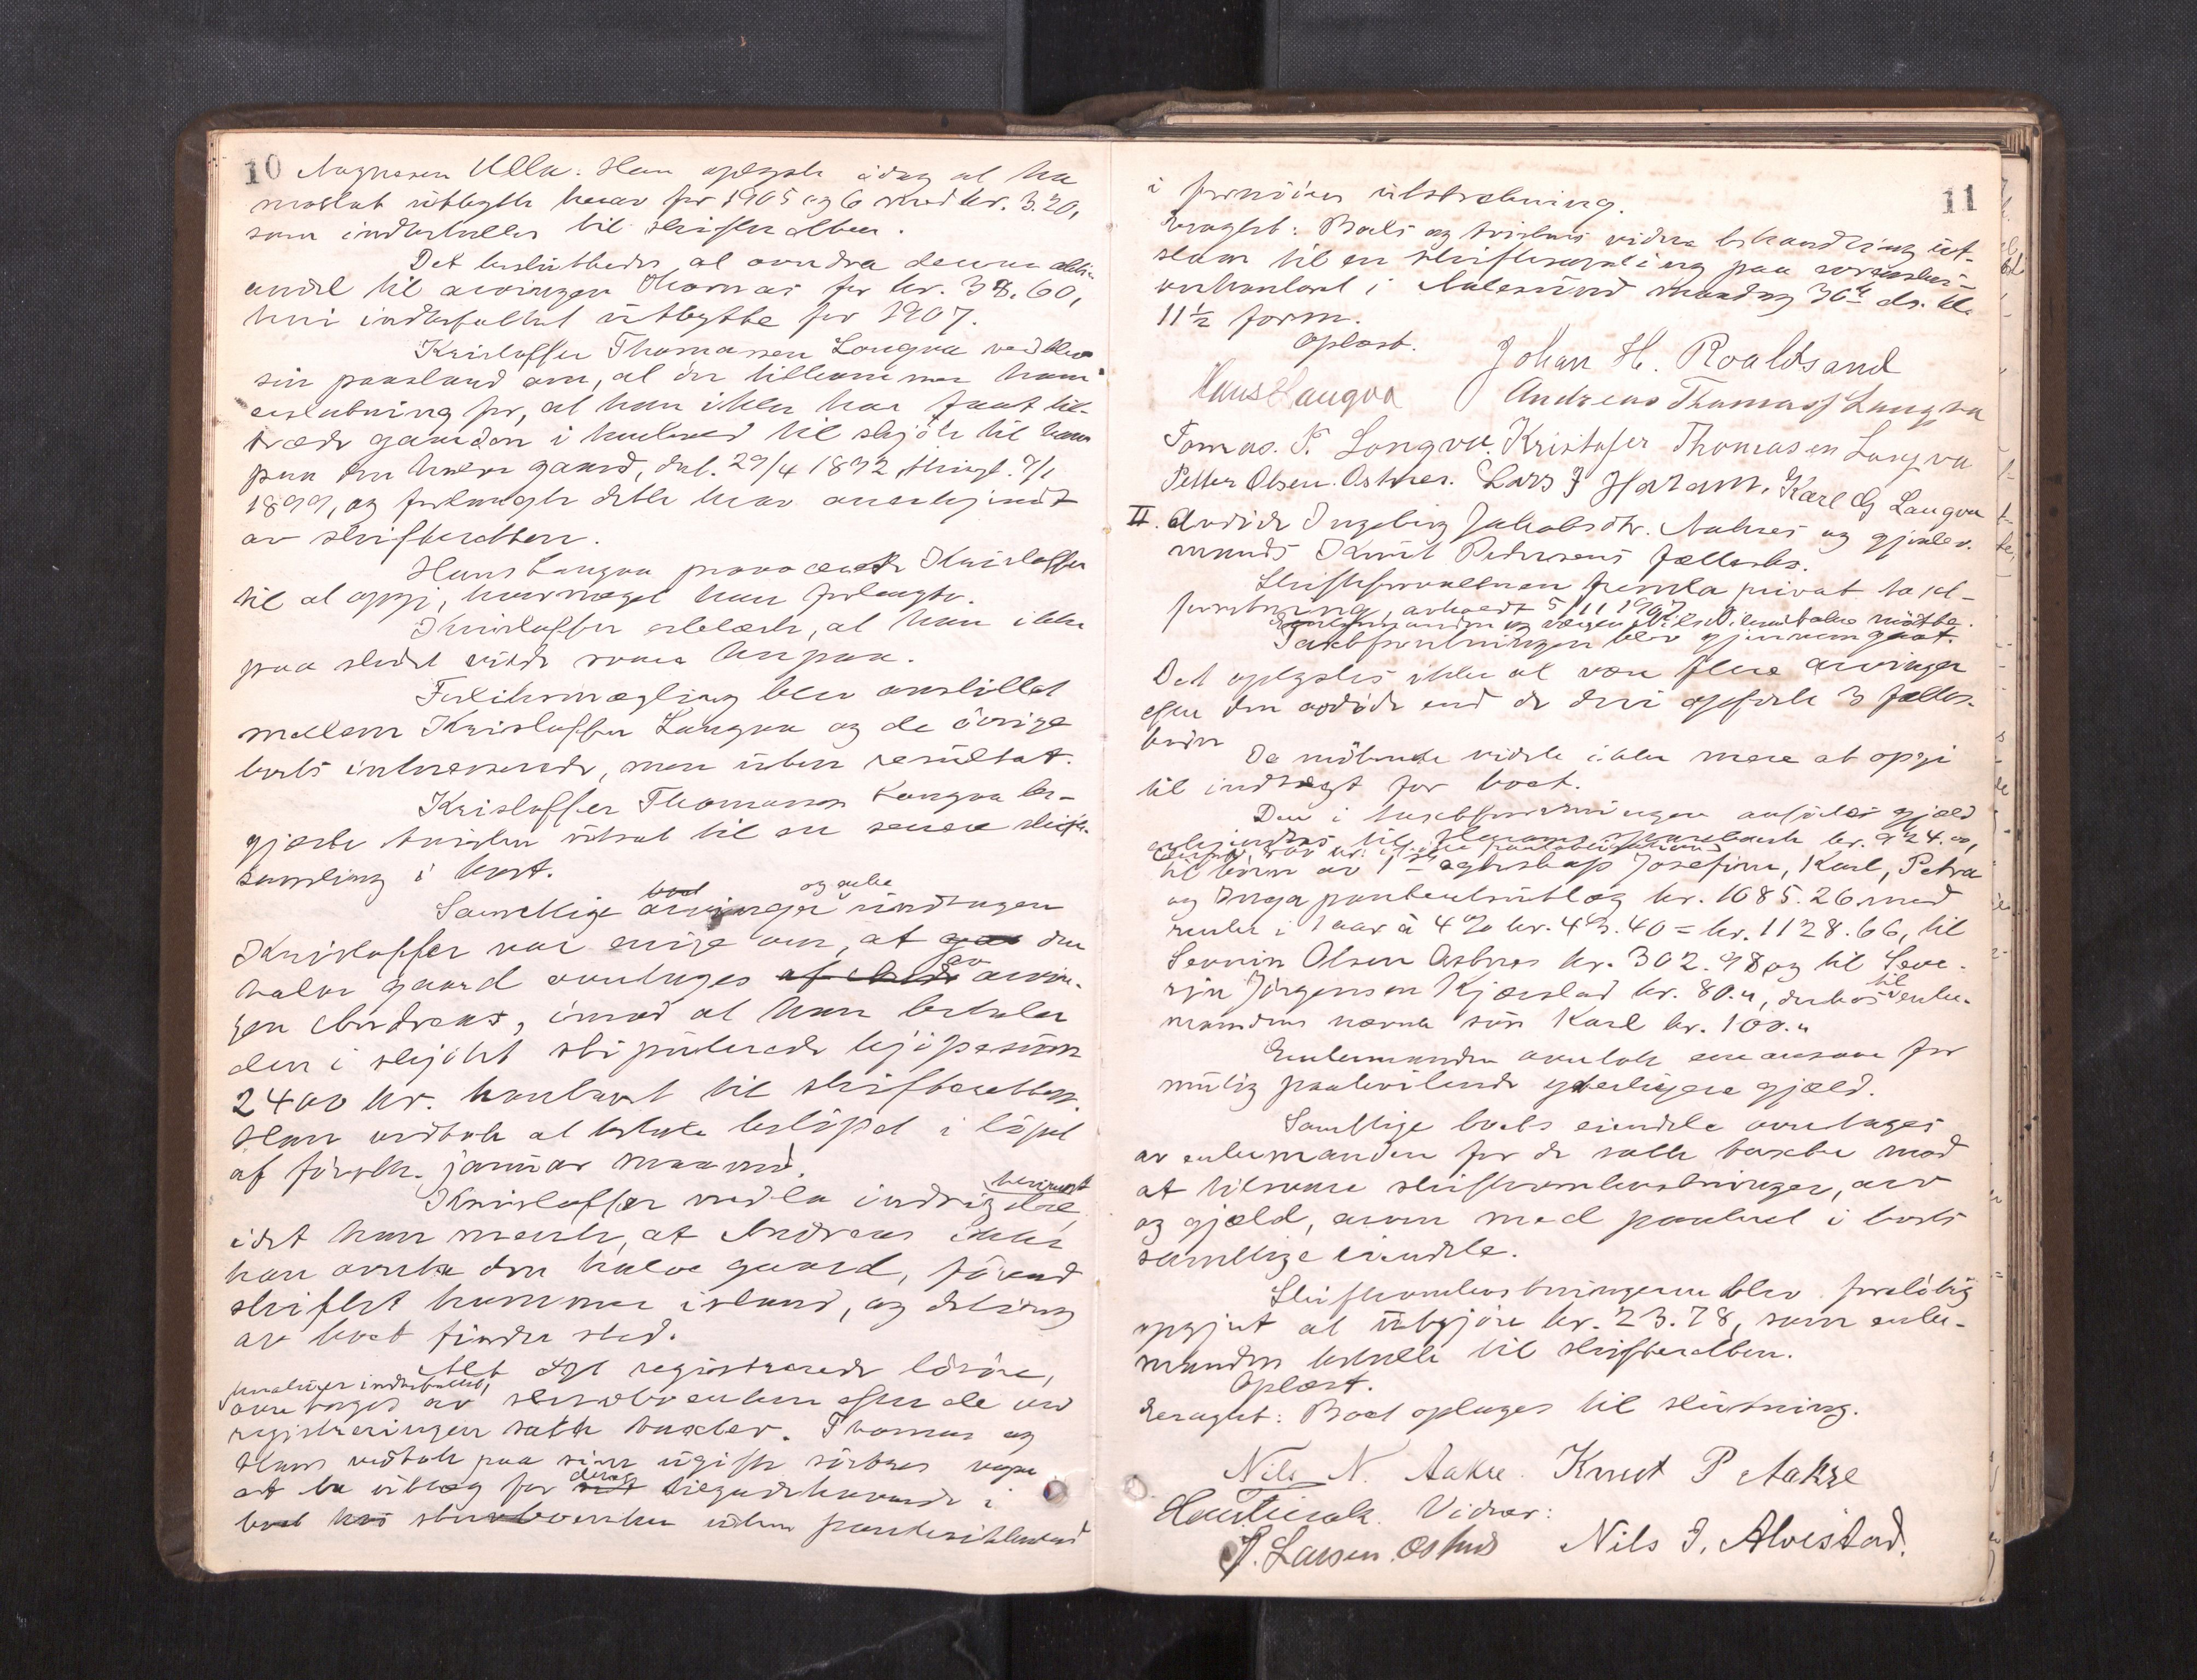 10 Magnesen Ulla. Han oplyste idag at ha
motat utbytte herav for 1905 og 6 med kr. 3.20,
som indbetalles til skifteretten.
Det besluttedes at overdra denne aktie-
andel til arvingen Thomas for kr. 38.60,
heri indbefattet utbytte for 1907.
Kristoffer Thomassen Longva vedblev
sin paastand om, at der tilkommer ham
erstatning for, at han ikke har faat til-
træde gaarden i henhold til skjöte til ham
paa den halve gaard, dat. 29/4 1892, thingl. 7/1
1899, og forlangte dette krav anerkjendt
av skifteretten.
Hans Longva provocerte Kristoffer
til at opgi, hvormeget han forlangte.
Kristoffer erklærte, at han ikke
paa stedet vilde svare herpaa.
Forliksmægling blev anstillet
mellem Kristoffer Longva og de övrige
boets interesserede, men uten resultat.
Kristoffer Thomassen Longva be-
gjærte tvisten utsat til en senere skifte-
samling i boet.
Samtlige arvinger og enke undtagen
Kristoffer var enige om, at den
halve gaard overtages av arvin-
gen Andreas, imod at han betaler
den i skjötet stipulerede kjöpesum
2400 kr. kontant til skifteretten.
Han vedtok at betale belöpet i löpet
af förstk. januar maaned.
Kristoffer nedla indsigelse herimot
idet han mente, at Andreas ikke
kan overta den halve gaard, förend
skiftet kommer istand, og deling
av boet finder sted.
Alt det registrerede lösöre,
kreaturer indbefattet,
overtages av sterboenken efter de ved
registreringen satte takster. Thomas og
Hans vedtok paa sine ugifte söstres vegne
at ta utlæg for deres tilgodehavende i
boet hos sterboenken uten pantesikkerhed
11
i fornöden utstrækning.
Eragtet: Boets og tvistens videre behandling ut-
staar til en skiftesamling paa sorenskri-
verkontoret i Aalesund mandag 30te ds. kl.
11½ form.
Oplæst. Johan H. Roaldsand
Hans Laugva Andreas Thomass Langva
Tomas. T. Longva. Kristofer Thomasen Longva
Petter Olsen. Østnes. Lars J Haram. Karl G Langva
II. Avdöde Ingeborg Jakobsdtr. Aakres og gjenlev.
mands Knut Pedersens fællesbo.
Skifteforvalteren fremla privat takst-
forretning, avholdt 5/11 1907.
Enkemanden og værgen Nils Nilsen Aakre mötte.
Takstforretningen blev gjennemgaat.
Det oplystes ikke at være flere arvinger
efter den avdöde end de deri opförte 3 fælles-
börn
De mötende vidste ikke mere at opgi
til indtægt for boet.
Den i takstforretningen anförte gjæld
erkjendtes til Harams sparebank kr. 924.00,
til börn av 1ste egteskap Josefine, Karl, Petra
og Inga panteutlæg kr. 1085.26 med
renter i 1 aar à 4% kr. 43.40 = kr. 1128.66, til
Severin Olsen Østnes kr. 302.98 og til Seve-
rin Jörgensen Kjærstad kr. 80.", derhos til enke-
mandens nævnte sön Karl kr. 100."
Enkemanden overtok eneansvar for
mulig paahvilende yderligere gjæld.
Samtlige boets eiendele overtages
av enkemanden for de satte takster mod
at tilsvare skifteomkostninger, arv
og gjæld, arven med panteret i boets
samtlige eiendele.
Skifteomkostningerne blev foreløbig
opgjort at utgjöre kr. 23.78, som enke-
manden betalte til skifteretten.
Oplæst.
Eragtet: Boet optages til slutning.
Nils N. Aakre. Knut P Aakre
Hautierak. Vidner:
P. Larsen. Østnes Nils J. Alvestad.